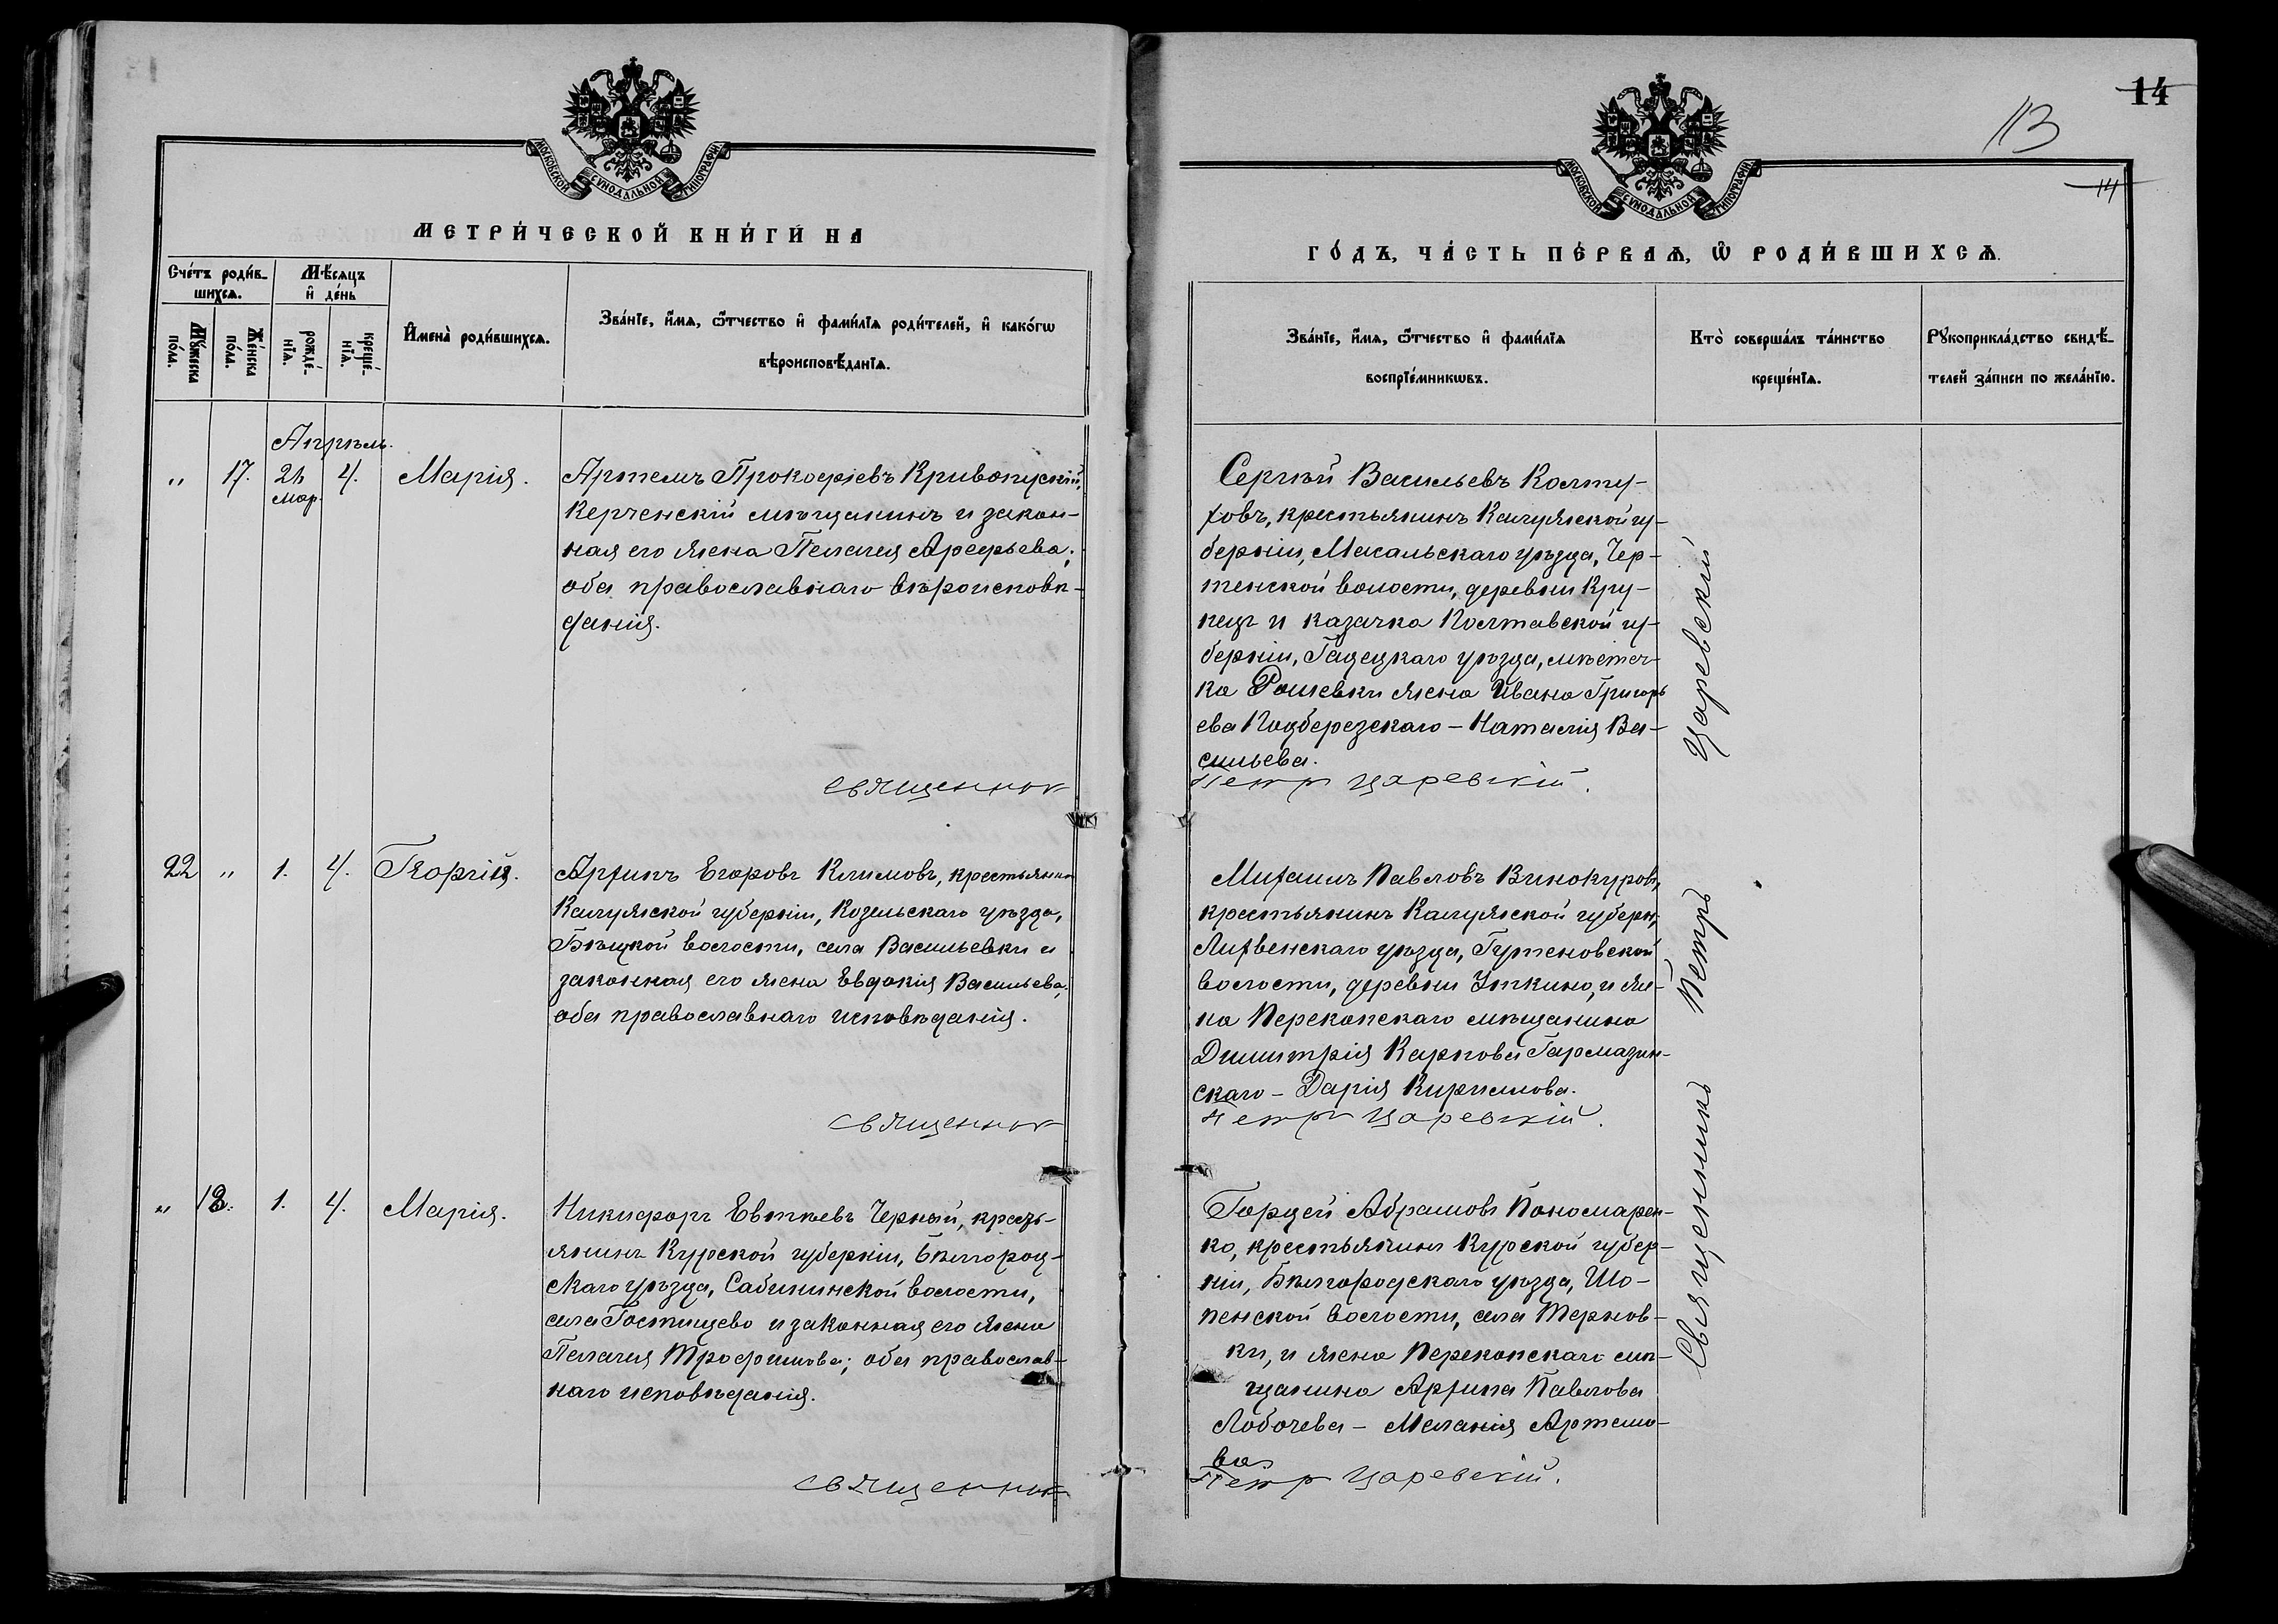 МОСКОВСКОЙ СУНОДАЛЬНОЙ ТИПОГРАФІИ
МЕТРИ́ЧЕСКОЙ КНИ́ГИ НА
Сче́тъ роди́в-
шихсѧ.
Мѣ́сѧцъ
и҆ де́нь
Мꙋ́жеска
по́ла.
Же́нска
по́ла.
рожде́-
нїѧ.
креще́-
нїѧ.
И҆мена̀ роди́вшихсѧ.
Зва́нїе, и҆́мѧ, ѻ҆́тчество и҆ фами́лїѧ роди́телей, и҆ како́гѡ
вѣроисповѣ́данїѧ.
Апрѣль.
" 17. 24 4. Марія.
мар.
Артемъ Прокофіевъ Кривопускій,
Керченскій мѣщанинъ и закон-
ная его жена Пелагея Арефьева;
оба православнаго вѣроисповѣ-
данія.
священник
22 " 1. 4. Георгій.
Архипъ Егоровъ Климовъ, крестьянин
Калужской губерніи, Козельскаго уѣзда,
волости, села Васильевки и
законная его жена Евдокія Васильева,
оба православнаго исповѣданія.
священник
" 18. 1. 4. Марія.
Никифоръ Евтѣевъ Черный, кресть-
янинъ Курской губерніи, Бѣлгород-
скаго уѣзда, Сабининской волости,
села Гостищево и законная его жена
Пелагея Трофимова; оба православ-
наго исповѣданія.
священник
14
113
14
МОСКОВСКОЙ СУНОДАЛЬНОЙ ТИПОГРАФІИ
ГО́ДЪ, ЧА́СТЬ ПЕ́РВАѦ, Ѡ҆ РОДИ́ВШИХСѦ.
Зва́нїе, и҆́мѧ, ѻ҆́тчество и҆ фами́лїѧ
воспрїе́мникѡвъ.
Кто̀ соверша́лъ та́инство
креще́нїѧ.
Рꙋкоприкла́дство свидѣ́-
телей за́писи по жела́нїю.
Сергѣй Васильевъ Колту-
ховъ, крестьянинъ Калужской гу-
берніи, Масальскаго уѣзда, Чер-
тенской волости, деревни Кру-
пецъ и казачка Полтавской гу-
берніи, Гадецкаго уѣзда, мѣстеч-
ка Рашевки жена Ивана Григорь
ева Подберезскаго - Наталія Ва-
сильева.
Петр Царевскій.
Михаилъ Павловъ Винокуровъ,
крестьянинъ Калужской губерн,
Лихвенскаго уѣзда,
волости, деревни Уткино, и же-
на Перекопскаго мѣщанина
Димитрія Карпова Гармазин-
скаго - Дарія Кириллова.
Петръ Царевскій.
Гордей Абрамовъ Пономарен-
ко, крестьянинъ Курской губер-
ніи, Бѣлгородскаго уѣзда, Шо-
пенской волости, села Тернов-
ки, и жена Перекопскаго мѣ-
щанина Архипа Павлова
Лобочева - Меланія Артемо-
ва.
Петр Царевскій.
Священникъ Петръ Царевскій